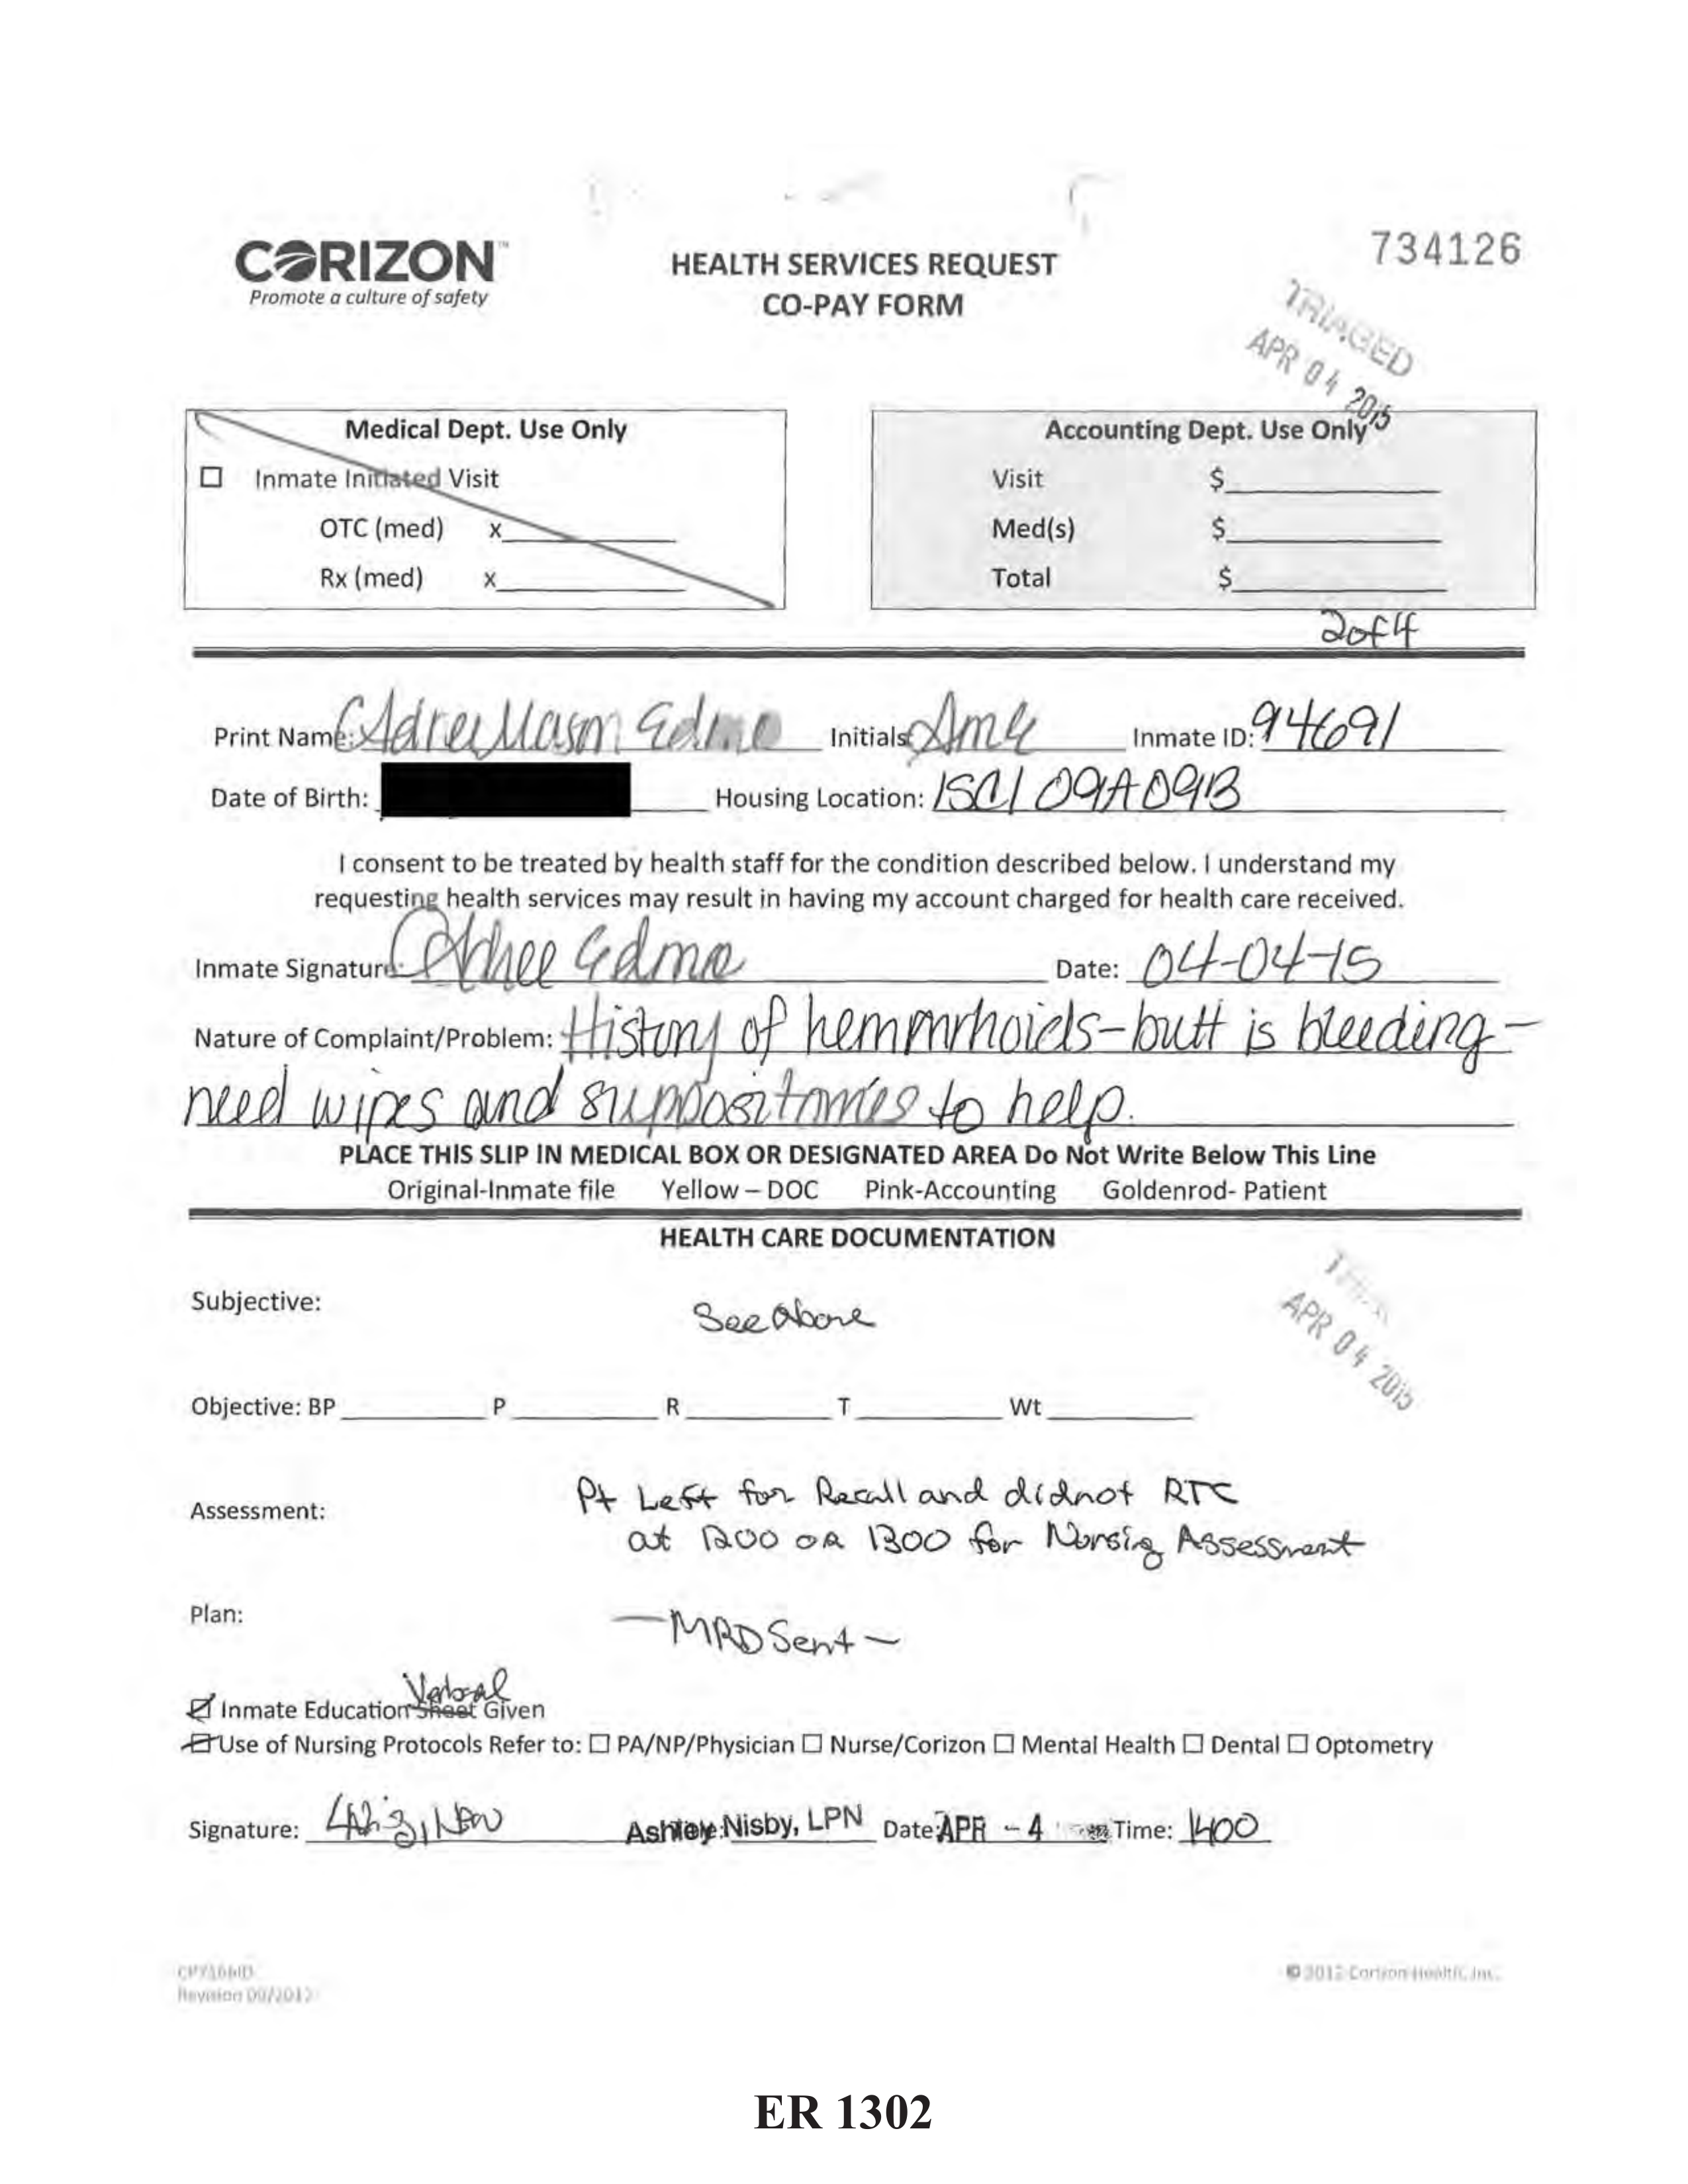 CORIZON™
Promote a culture of safety
HEALTH SERVICES REQUEST
CO-PAY FORM
734126
TRIAGED
APR 04 2015
Medical Dept. Use Only
☐ Inmate Initiated Visit
OTC (med) x
Rx (med) x
Accounting Dept. Use Only
Visit $
Med(s) $
Total $
2 of 4
Print Name: Adree Mason Edmo Initials: AME Inmate ID: 94691
Date of Birth: Housing Location: ISCI 09A09B
I consent to be treated by health staff for the condition described below. I understand my
requesting health services may result in having my account charged for health care received.
Inmate Signature: Adree Edmo Date: 04-04-15
Nature of Complaint/Problem: History of hemmrhoids-butt is bleeding-
need wipes and suppositories to help.
PLACE THIS SLIP IN MEDICAL BOX OR DESIGNATED AREA Do Not Write Below This Line
Original-Inmate file Yellow – DOC Pink-Accounting Goldenrod- Patient
HEALTH CARE DOCUMENTATION
Subjective: See Above
APR 04 2015
Objective: BP P R T Wt
Assessment: Pt Left for Recall and didnot RTC
at 1200 or 1300 for Nursing Assessment
Plan: — MRD Sent —
☑ Inmate Education Sheet Verbal Given
Use of Nursing Protocols Refer to: ☐ PA/NP/Physician ☐ Nurse/Corizon ☐ Mental Health ☐ Dental ☐ Optometry
Signature: Ashley Nisby, LPN Date: APR - 4 Time: 1400
Revision 09/2012
© 2012 Corizon Health, Inc.
ER 1302